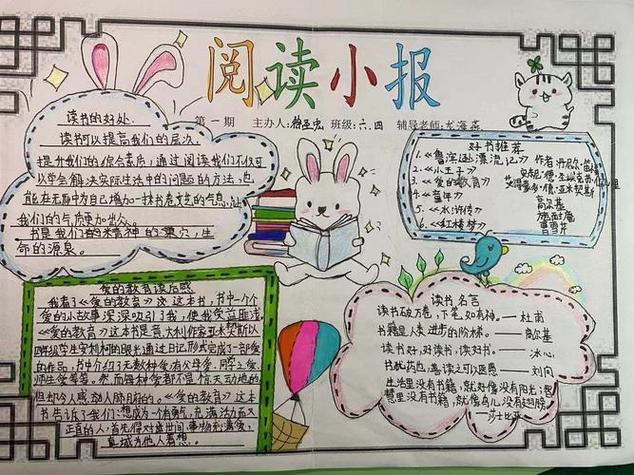 阅读小报
第一期 主办人: 班级:六.四 辅导老师:
读书的好处
读书可以提高我们的层次,
提升我们的综合素质,通过阅读我们不仅可
以学会解决实际生活中的问题的方法,也
能在无形中为自己增加一抹书卷文艺的气息,让
我们的气质更加出众。
书是我们的精神的巢穴,生
命的源泉。
好书推荐
1.《鲁滨逊漂流记》 作者:
2.《小王子》
3.《爱的教育》
4.《童年》 高尔基
5.《水浒传》 施耐庵
6.《红楼梦》 曹雪芹
爱的教育读后感
我看了《爱的教育》这本书,书中一个个
爱的小故事深深吸引了我,使我受益匪浅。
《爱的教育》这本书是意大利作家亚米契斯以
四年级学生安利柯的眼光通过日记形式完成了一部爱
的作品,书中介绍了无数种爱有父母爱,同学之爱,
师生爱等等。然而每种爱都不是惊天动地的,
但却令人感动人肺月府的。《爱的教育》这本
书告诉了我们:想成为一个有勇气,充满活力而又
正直的人,首先得对整世间
真诚为他人着想。
读书名言
读书破万卷,下笔如有神。——杜甫
书籍是人类进步的阶梯。——高尔基
读书好,好读书,读好书。——冰心
书犹药也,善读之可以医愚——刘向
生活里没有书籍,就好像没有阳光;智
慧里没有书籍,就像鸟儿没有翅膀
——莎士比亚